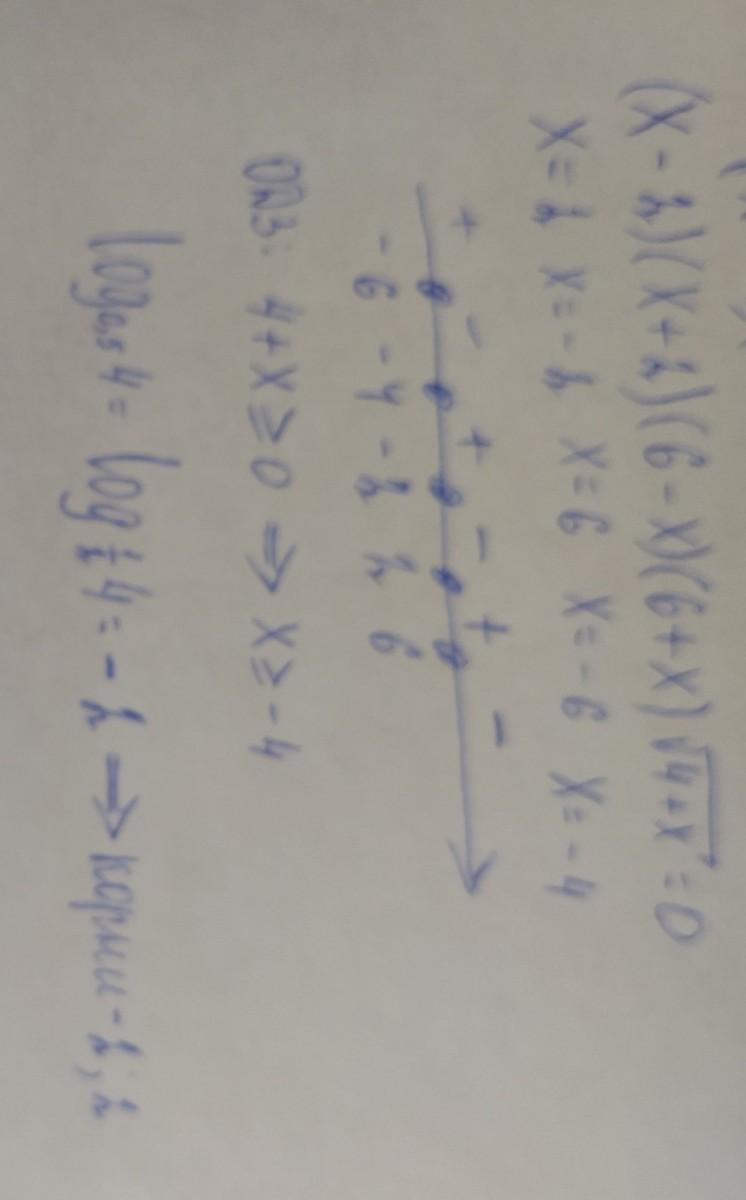 (x-2)(x+2)(6-x)(6+x)√4+x = 0
x=2 x=-2 x=6 x=-6 x=-4
+ - + - + -
-6 -4 -2 2 6
ОДЗ: 4+x≥0 ⇒ x≥-4
log₀,₅4 = log½4 = -2 → корни -2; 2